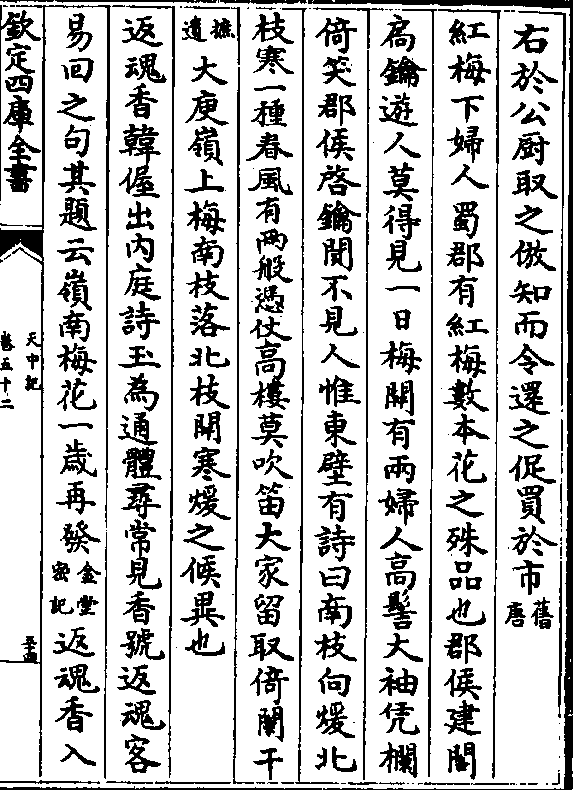 右於公厨取之倣知而令還之促買於市舊唐
紅梅下婦人 蜀郡有紅梅數本花之殊品也郡侯建閣
扃鑰遊人莫得見一日梅開有兩婦人高髻大袖凭欄
倚笑郡侯啓鑰閴不見人惟東壁有詩曰南枝向煖北
枝寒一種春風有兩般憑仗高樓莫吹笛大家留取倚闌干
摭遺 大庾嶺上梅南枝落北枝開寒煖之候異也
返魂香韓偓出内庭詩玉為通體尋常見香號返魂客
易回之句其題云嶺南梅花一歲再發金堂密記返魂香入
欽定四庫全書
天中記
卷五十二